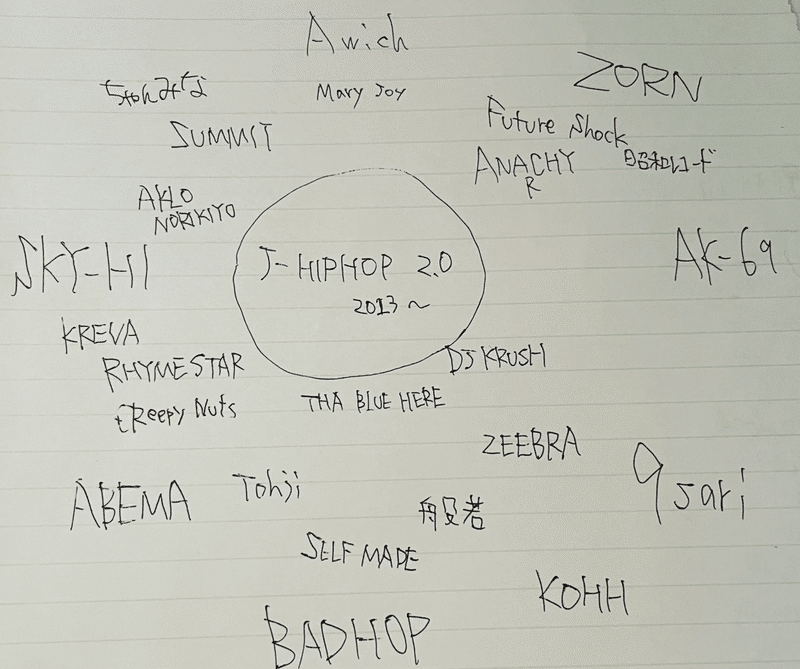 Awich
ちゃんみな
Mary Joy
ZORN
SUMMIT
Future Shock
ANACHY
R
昭和レコード
AKLO
NORIKIYO
SKY-HI
J-HIPHOP 2.0
2013~
AK-69
KREVA
RHYMESTAR
DJ KRUSH
CReepy Nuts
THA BLUE HERE
ZEEBRA
9sari
ABEMA
Tohji
般若
SELF MADE
KOHH
BADHOP